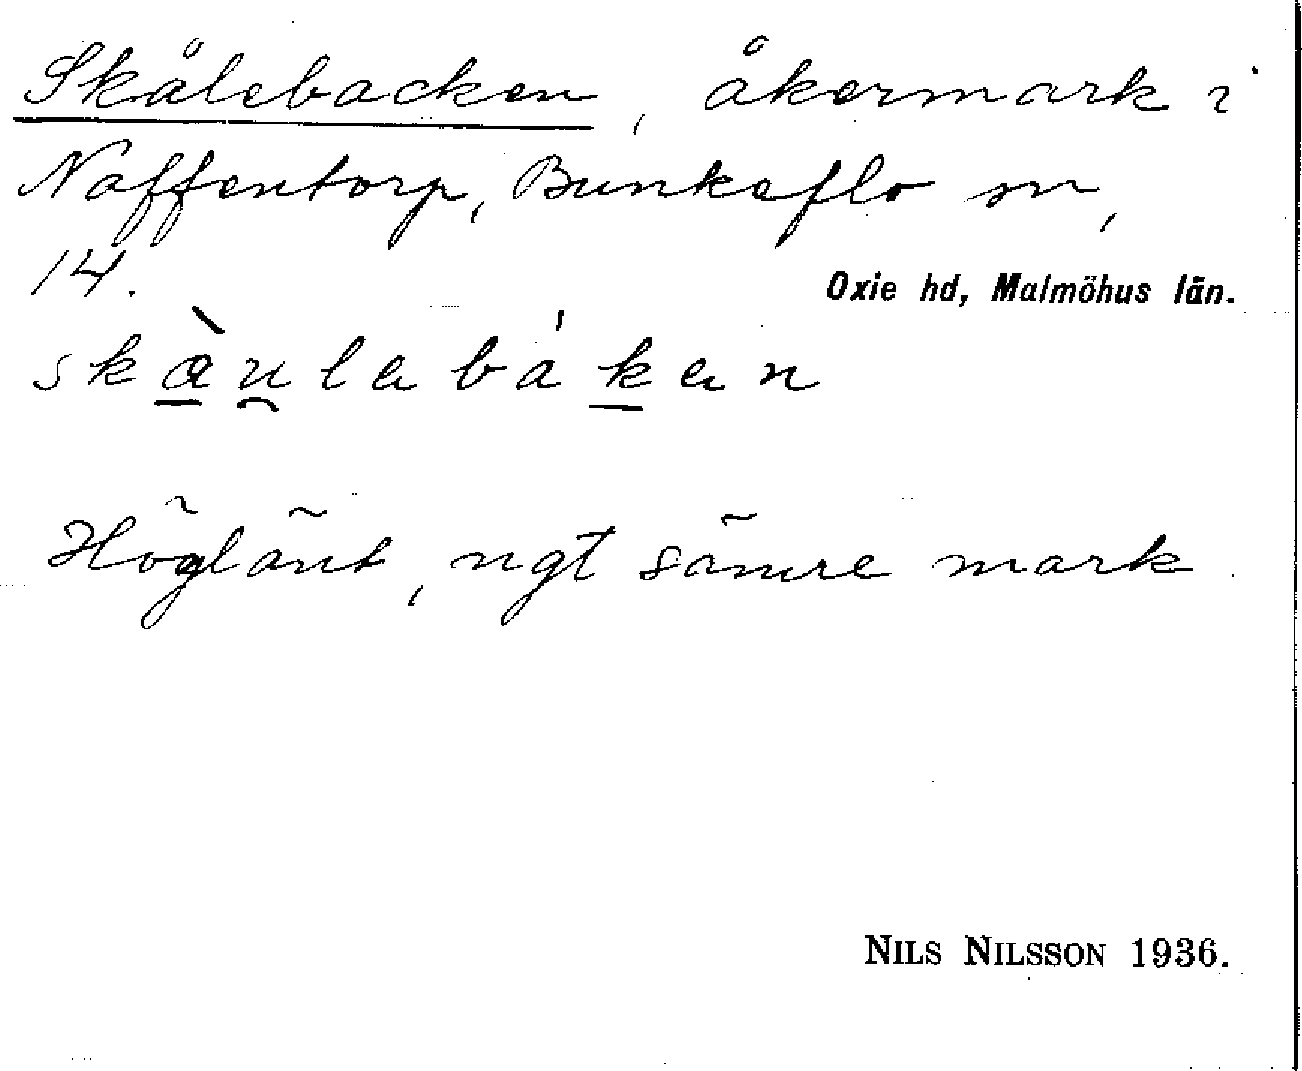 Skålebacken, åkermark i
Naffentorp, Bunkeflo sn,
14.
Oxie hd, Malmöhus län.
skàu̯labákan
Högländt, ngt sämre mark
NILS NILSSON 1936.